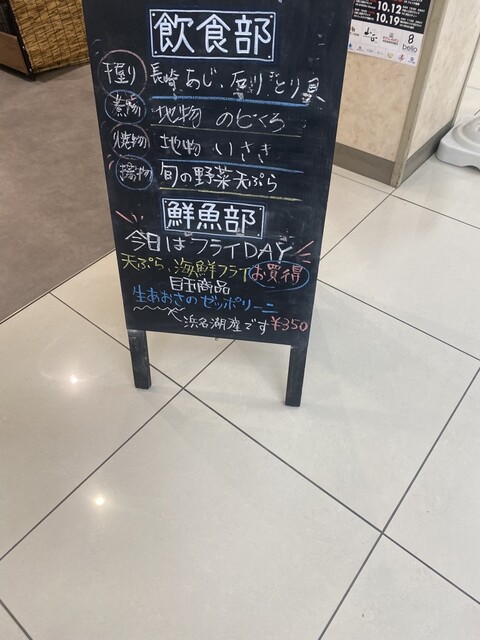 飲食部
握り 長崎 あじ、石川 とり貝
煮物 地物 のどぐろ
焼物 地物 いさき
揚物 旬の野菜天ぷら
鮮魚部
今日は フライDAY
天ぷら、海鮮フライお買得
目玉商品
生あおさのゼッポリーニ
浜名湖産です ¥350
10.12
10.19
8
bello